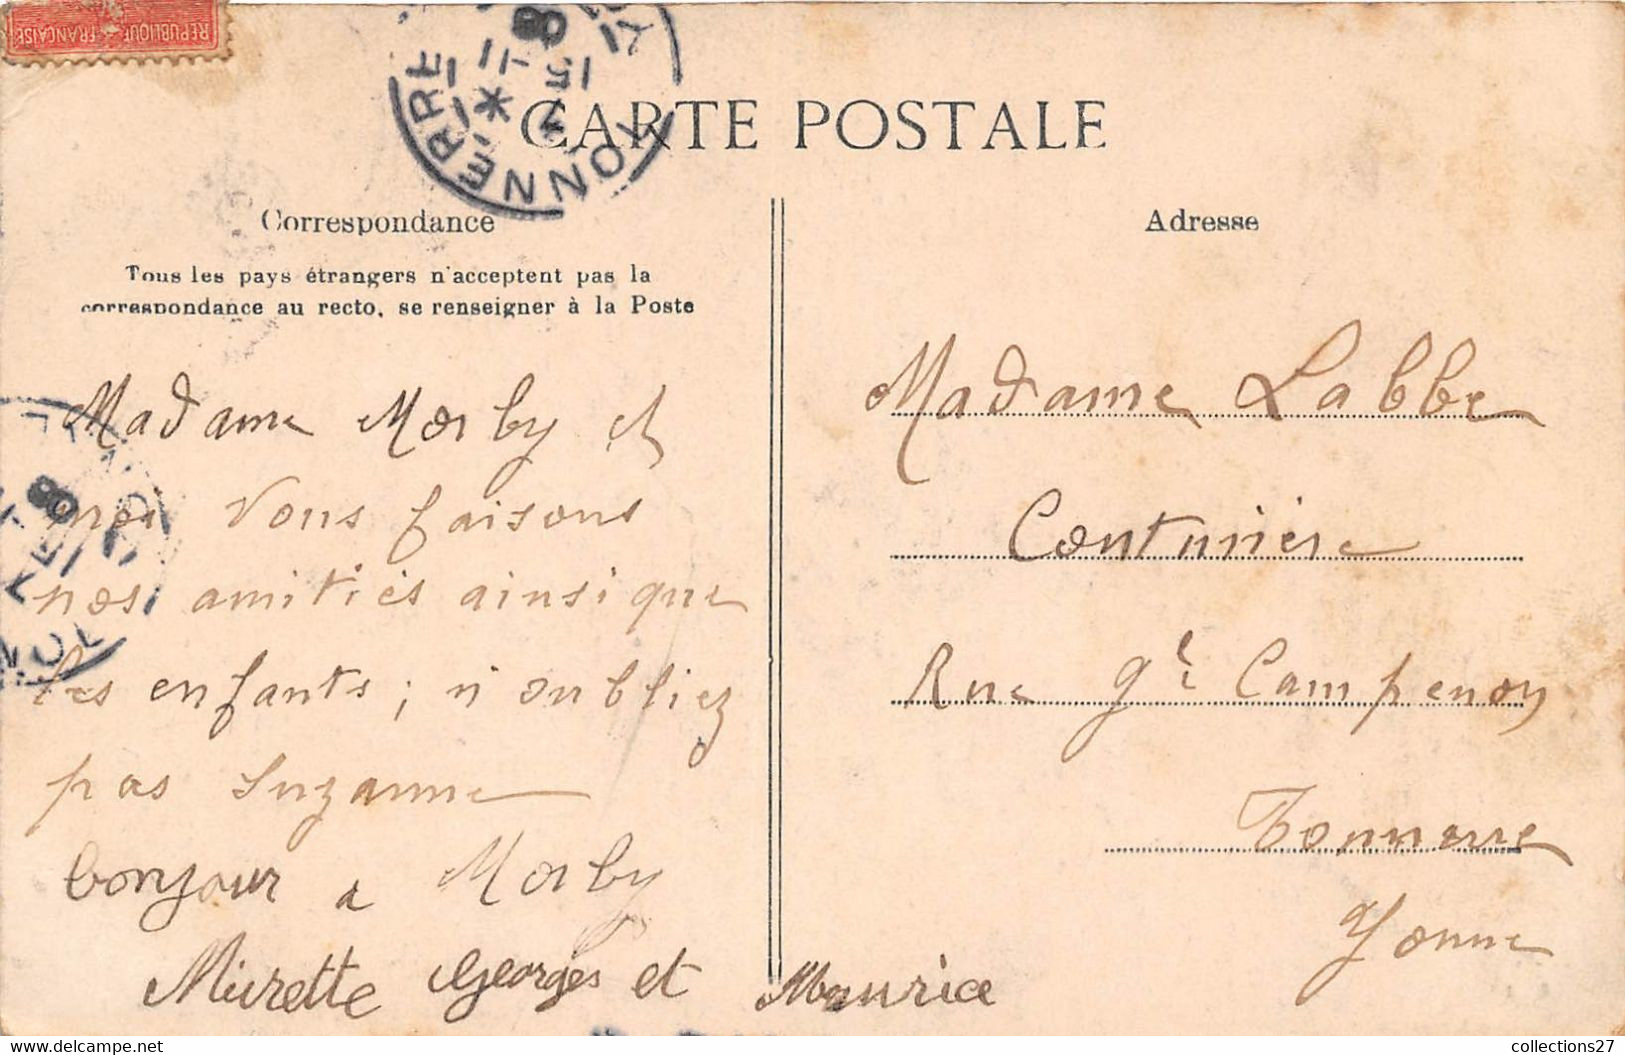 REPUBLIQUE FRANÇAISE
TONNERRE
CARTE POSTALE
Correspondance
Tous les pays étrangers n'acceptent pas la
correspondance au recto, se renseigner à la Poste
Madame Morby et
moi vous faisons
nos amitiés ainsi que
les enfants; n'oubliez
pas Suzanne
bonjour a Morby
Mirette Georges et Maurice
Adresse
Madame Labbe
Couturière
Rue Gl Campenon
Tonnerre
Yonne
collections27